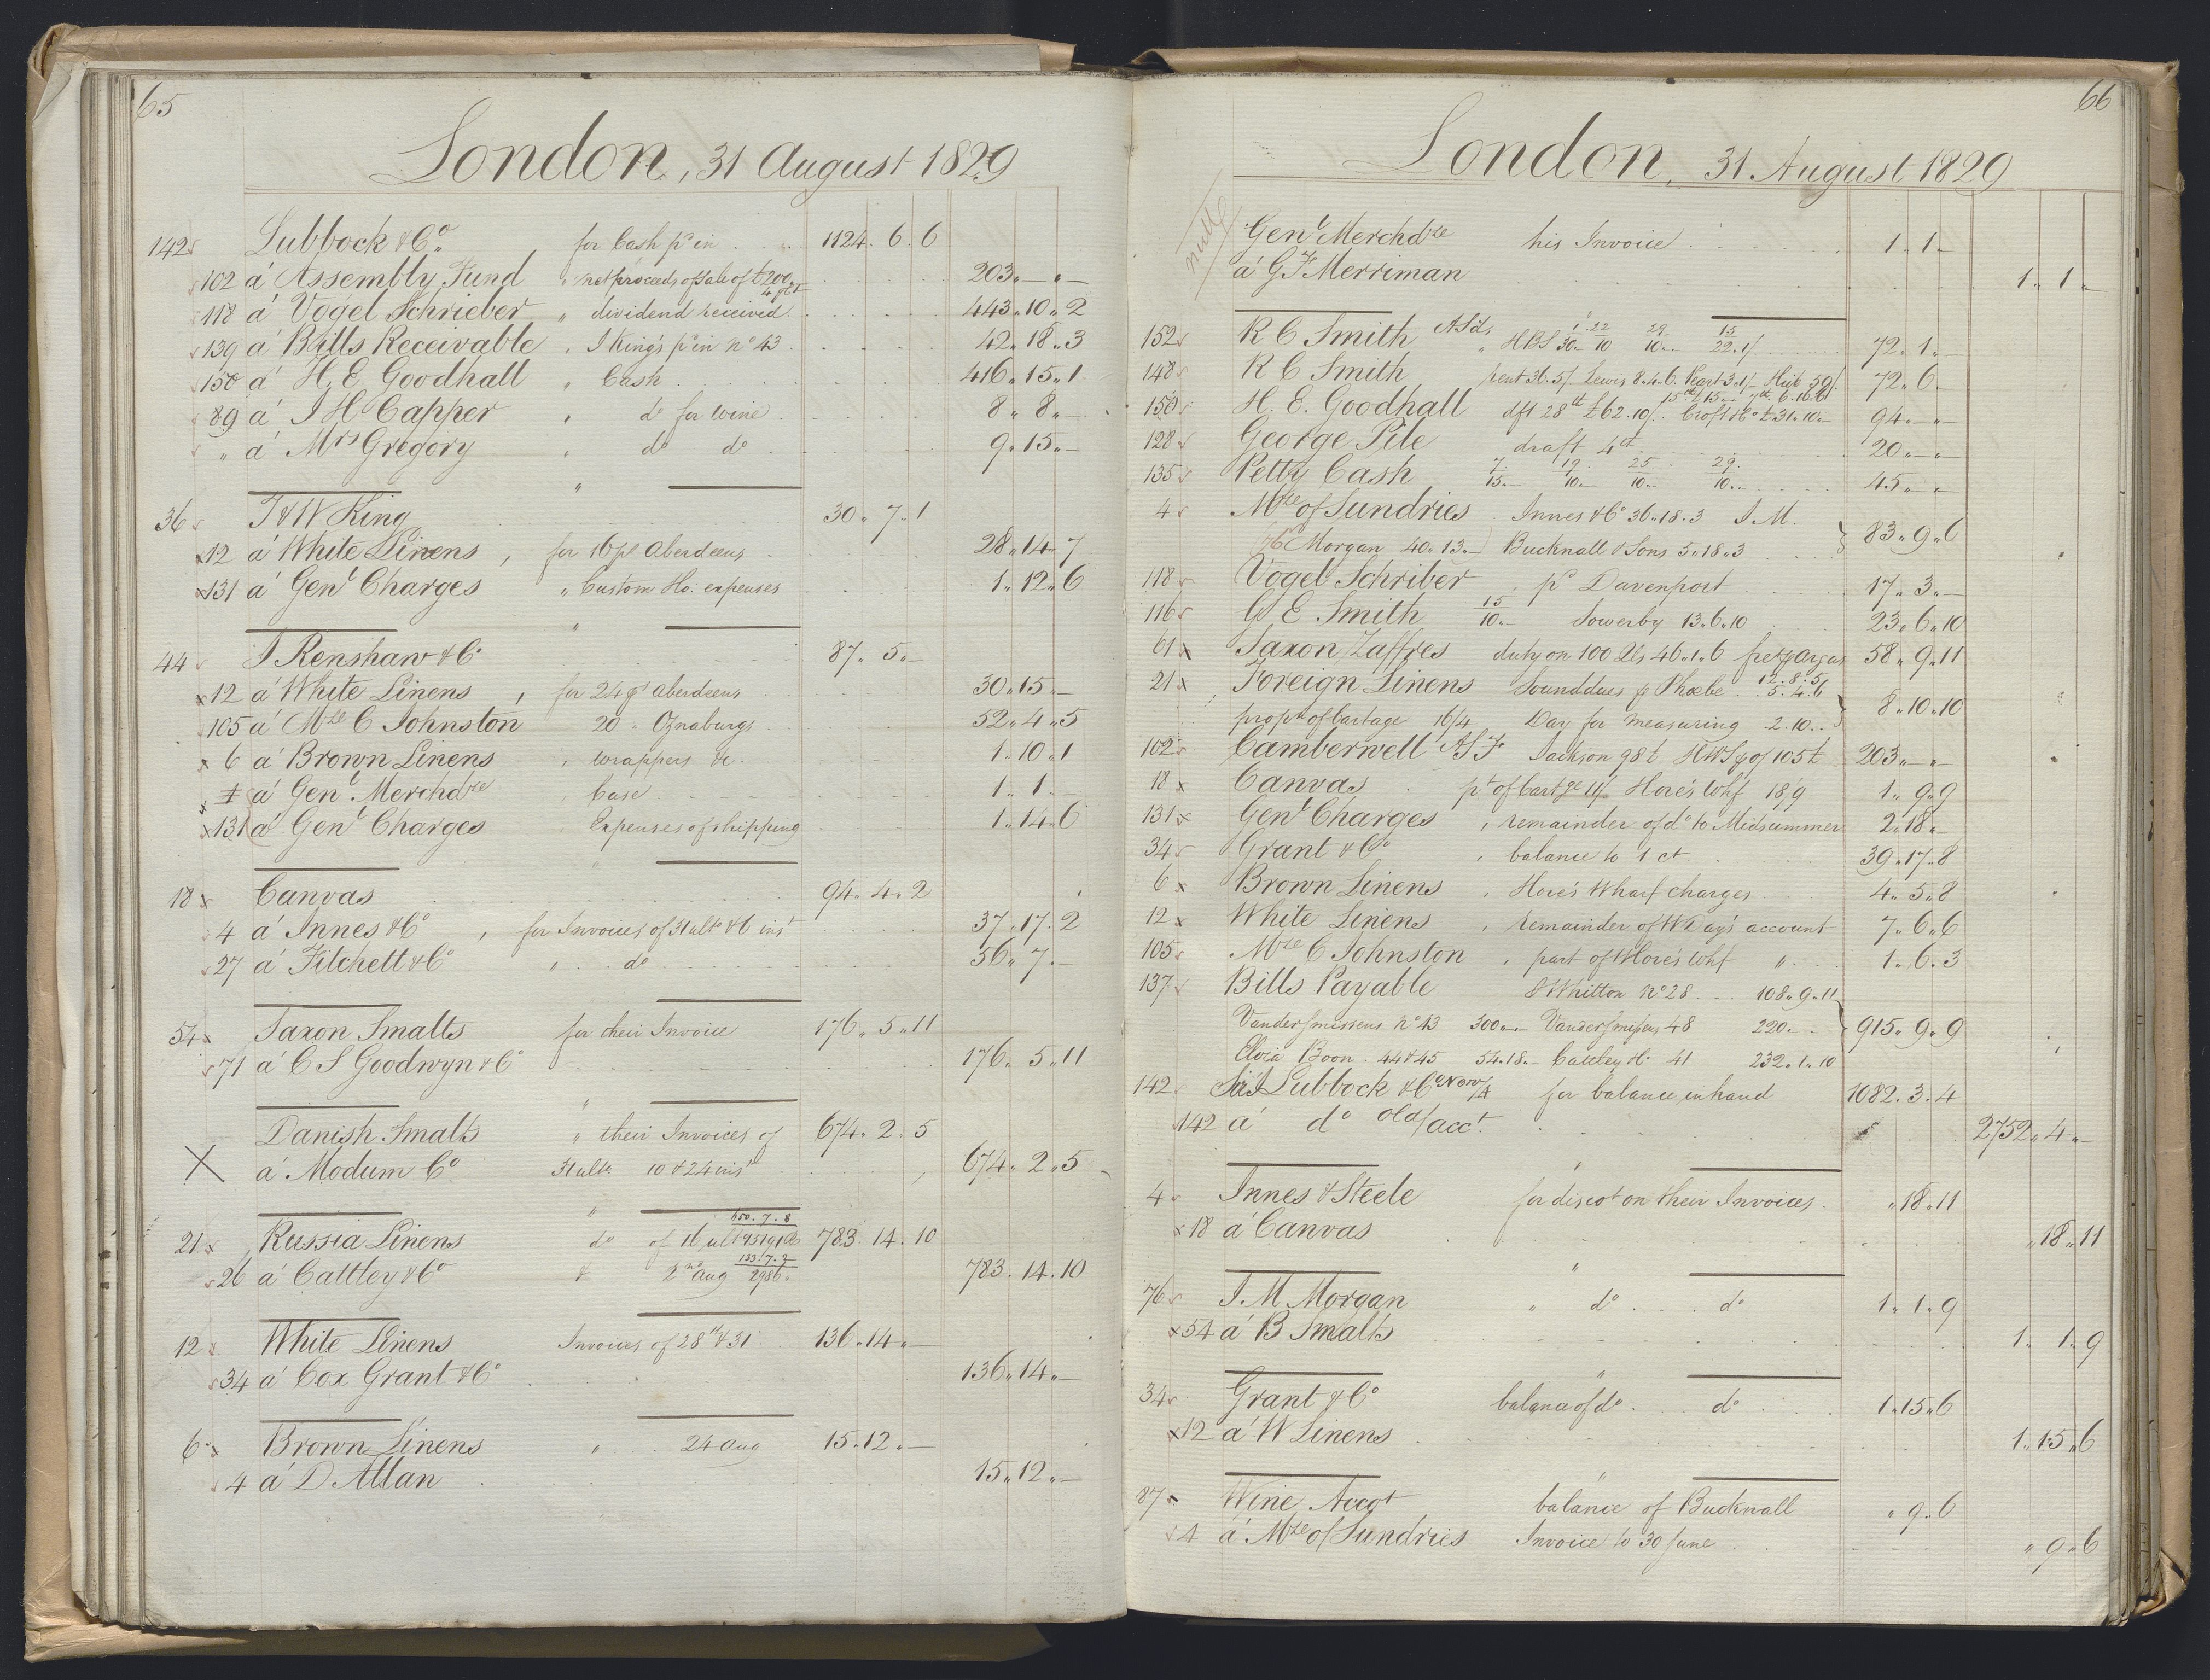 65
London, 31 August 1829
142 Lubbock & Co. for Cash pd in 1124. 6. 6
102 á Assembly Fund " net proceeds of sale of £200 4 pCt 203 " — " —
118 á Vogel Schrieber " dividend received 443 " 10 " 2
139 á Bills Receivable " I King's pd in No 43 42 " 18 " 3
150 á H. E Goodhall " Cash 416 " 15 " 1
89 á I H Capper " do for wine 8 " 8 " —
" á Mrs Gregory " do do 9 " 15 " —
36 T & W King 30 " 7 " 1
12 á White Linens, for 16 ps Aberdeens 28 " 14 " 7
131 á Genl Charges " Custom Ho: expenses 1 " 12 " 6
44 I Renshaw & Co 87 " 5 " —
12 á White Linens, for 24 ps Aberdeens 30 " 15 " —
105 á Mdze C Johnston 20 " Oznaburgs 52 " 4 " 5
6 á Brown Linens " wrappers &c 1 " 10 " 1
á Genl Merchdze Case 1 " 1 " —
131 á Genl Charges Expenses of shipping 1 " 14 " 6
18 Canvas 94 " 4 " 2
4 á Innes & Co, for Invoices of 31 ulto & 6 inst 37 " 17 " 2
27 á Fitchett & Co " do 56 " 7 " —
54 Saxon Smalts for their Invoice 176 " 5 " 11
71 á C S Goodwyn & Co 176 " 5 " 11
Danish Smalts " their Invoices of 674 " 2 " 5
X á Modum Co 31 ulto 10 & 24 inst 674 " 2 " 5
650. 7. 8
21 Russia Linens do of 16 ulto 783. 14. 10
133. 7. 2
26 á Cattley & Co & 2nd Aug 2986 783. 14. 10
12 White Linens Invoices of 28th & 31 136 " 14 " —
34 á Cox Grant & Co 136 " 14 " —
6 Brown Linens " 24 Aug 15 " 12 " —
4 á D Allan 15 " 12 " —
66
London, 31. August 1829
null
Genl Merchdze his Invoice 1 " 1 —
á G F Merriman 1 " 1 "
152 R C Smith " HBS 1 22 29 15
30 " 10 10 " 22. 1/ 72 " 1 " —
148 R C Smith rent 36. 5/ Lewis 8. 4. 6. Peart 3. 1/ 72 " 6 —
150 H. E. Goodhall dft 28th £62. 10/. Croft & Co £31 " 10 — 94 " — " —
128 George Pile draft 4 ct 20 " — " —
135 Petty Cash 7 19 25 29
15 " 10 " 10 " 10 " 45 " — "
4 Mdze of Sundries Innes & Co 36 " 18. 3 I. M.
Morgan 40 " 13 " — Bucknall & Sons 5 " 18 " 3 83 " 9 " 6
118 Vogel Schriber, pd Davenport 17 " 3 " —
116 G E Smith 15
10 — Sowerby 13 " 6 " 10 23 " 6 " 10
61 Saxon Zaffres duty on 100 Cks 46 " 1 " 6 12. 8. 5 58 " 9 " 11
21 Foreign Linens Sounddues p Phœbe 5. 4. 6
propn of Cartage 16/4 Day for measuring 2. 10 8 " 10 " 10
102 Camberwell ASF Jackson 98£ of 105£ 203 " — " —
18 Canvas pt of Cartge 11/ Hore's Whf 18/9 1 " 9 " 9
131 Genl Charges, remainder of do to Midsummer 2 " 18 " —
34 Grant & Co, balance to 1 ct 39 " 17 " 8
6 Brown Linens, Hore's Wharf charges 4 " 5 " 8
12 White Linens, remainder of W Day's account 7 " 6 " 6
105 Mdze C Johnston, part of Hore's Whf " 1 " 6 " 3
137 Bills Payable I Whitton No 28 108 " 9 " 11
Vandersmissens No 43 300 " — Vandersmissens 48 220 " — 915 " 9 " 9
Boon 44 & 45 54 " 18 — Cattley & Co 41 232 " 1 " 10
142 Sir I Lubbock & Co New/A for balance in hand 1082. 3. 4
142 á do Old/acct. 2752 " 4 " —
4 Innes & Steele for discot on their Invoices " 18 " 11
18 á Canvas " 18 " 11
76 I. M Morgan " do do 1 " 1 " 9
54 á B Smalts 1 " 1 " 9
34 Grant & Co balance of do do 1 " 15 " 6
12 á W Linens 1 " 15 " 6
87 Wine Acct balance of Bucknall " 9 " 6
4 á Mdze of Sundries Invoice to 30 June " 9 " 6